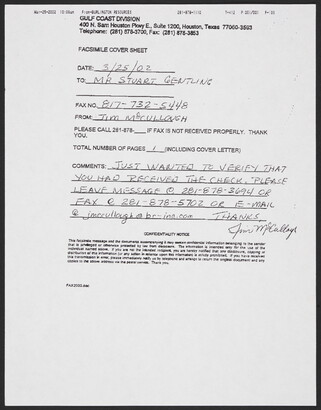 From-BURLINGTON RESOURCES
GULF COAST DIVISION
400 N. Sam Houston Pkwy E., Suite 1200, Houston, Texas 77060-3593
Telephone: (281) 878-3700, Fax: (281) 878-3853
FACSIMILE COVER SHEET
DATE: 3/25/02
TO: MR STUART GENTLING
FAX NO. 817-732-5448
FROM: JIM MCCULLOUGH
PLEASE CALL 281-878-____ IF FAX IS NOT RECEIVED PROPERLY. THANK
YOU.
TOTAL NUMBER OF PAGES 1 (INCLUDING COVER LETTER)
COMMENTS: JUST WANTED TO VERIFY THAT
YOU HAD RECEIVED THE CHECK. PLEASE
LEAVE MESSAGE @ 281-878-3694 OR
FAX @ 281-878-5702 OR E-MAIL
@ jmccullough@br-inc.com THANKS
Jim McCullough
CONFIDENTIALITY NOTICE
The facsimile message and the documents accompanying it may contain confidential information belonging to the sender
that is privileged or otherwise protected by law from disclosure. The information is intended only for the use of the
individual named above. If you are not the intended recipient, you are hereby notified that any disclosure, copying or
distribution of this information (or any action in reliance upon this information) is strictly prohibited. If you have received
this transmission in error, please immediately notify us by telephone and attempt to return the original document and any
copies to the above address via the postal service. Thank you.
FAX2000.doc